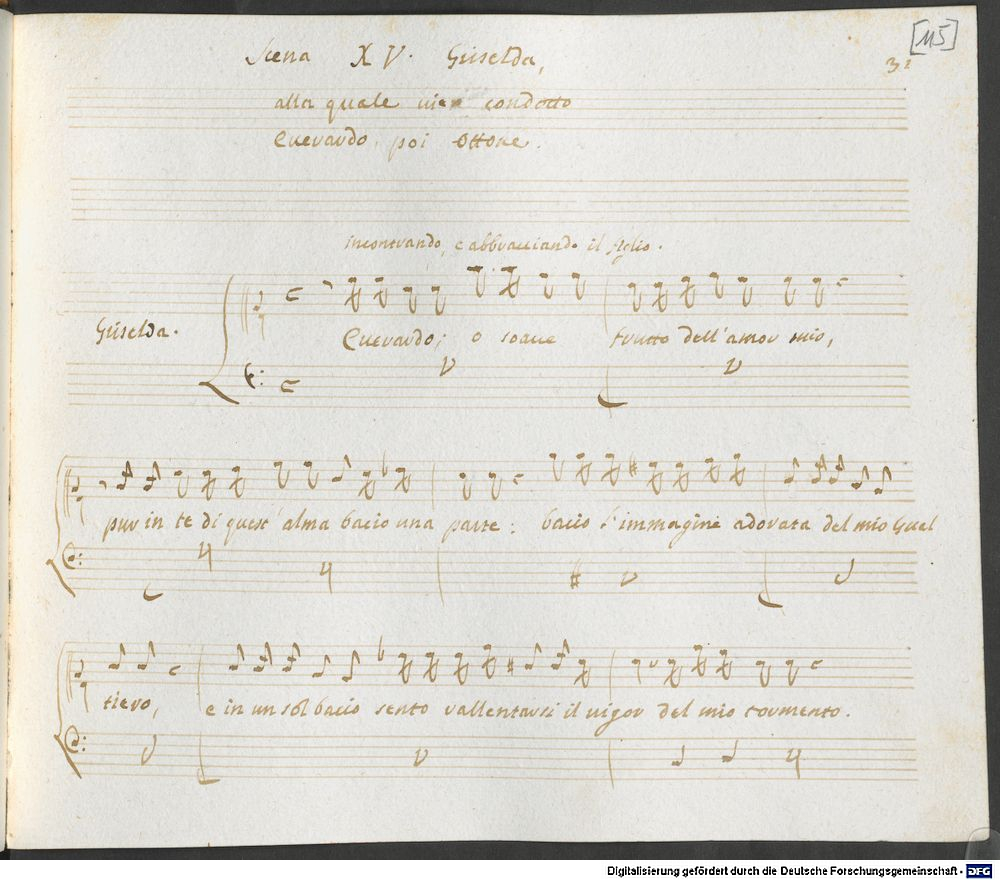 [115]
Scena XV. Griselda,
32
alla quale vien condotto
Everardo, poi Ottone.
incontrando, e abbracciando il figlio.
Griselda.
Everardo; o soave frutto dell'amor mio,
pur in te di quest'alma bacio una parte: bacio l'immagine adorata del mio Gual
tiero, e in un sol bacio sento rallentarsi il vigor del mio tormento.
Digitalisierung gefördert durch die Deutsche Forschungsgemeinschaft - DFG